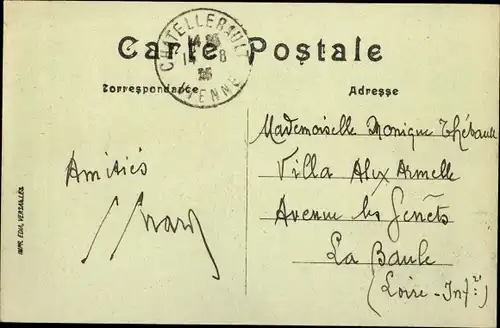 Carte Postale
CHATELLERAULT
VIENNE
Correspondance
Adresse
Amitiés
Mademoiselle Monique Thébault
Villa Alix Armelle
Avenue les Genêts
La Baule
(Loire-Infre)
IMP. EDIA VERSAILLES